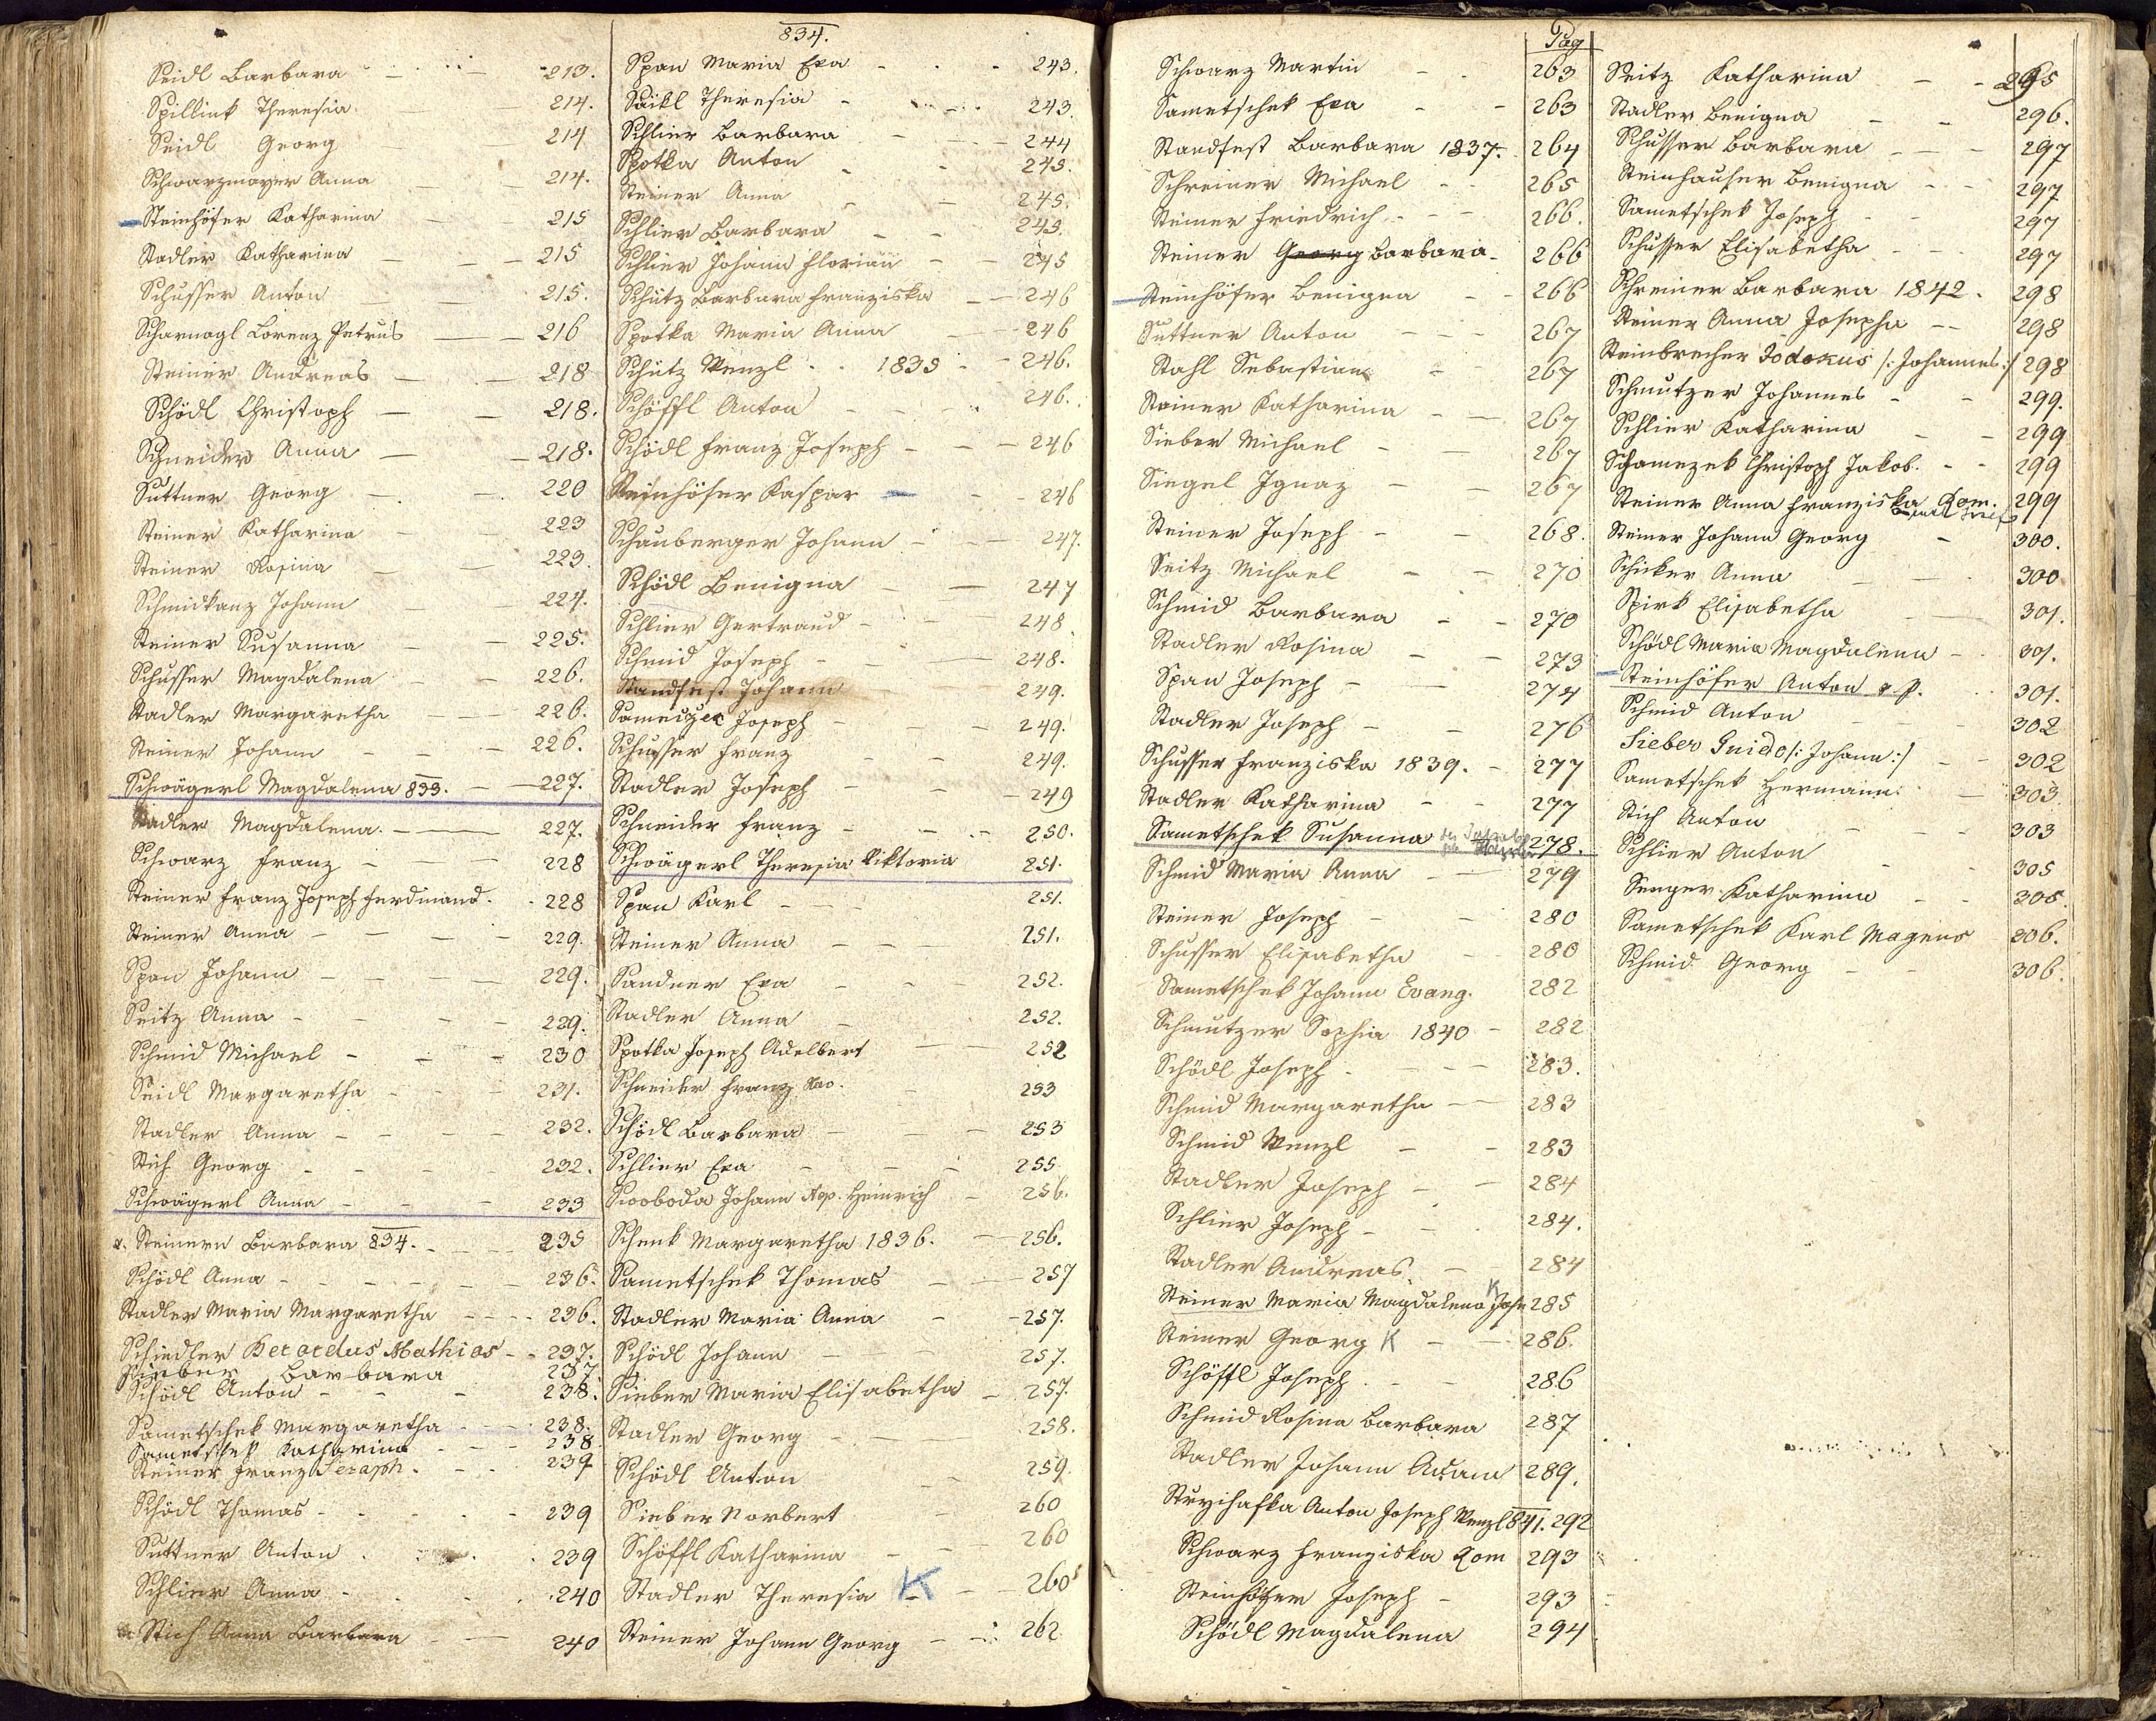 Seidl Barbara - - 213.
Spillink Theresia 214.
Seidl Georg 214
Schwarzmayer Anna - 214.
Steinhöfer Katharina - 215
Stadler Katharina - - 215
Schusser Anton - 215.
Scharnagl Lorenz Petrus - 216
Steiner Andreas - 218
Schödl Christoph - - 218.
Schneider Anna - - 218.
Suttner Georg - - 220
Steiner Katharina - 223
Steiner Rosina - - 223.
Schmidkanz Johann - 224.
Steiner Susanna - - 225.
Schusser Magdalena - - 226.
Stadler Margaretha - - 226.
Steiner Johann - - - 226.
Schwägerl Magdalena 833. - 227.
Stadler Magdalena. - - 227.
Schwarz Franz - - - 228
Steiner Franz Joseph Ferdinand. - 228
Steiner Anna - - - - 229.
Span Johann - - - - 229.
Seitz Anna - - - - 229.
Schmid Michael - - - 230
Seidl Margaretha - - - 231.
Stadler Anna - - - - 232.
Stich Georg - - - - 232.
Schwägerl Anna - - - 233
Steinern Barbara 834. - - 235
Schödl Anna - - - - 236.
Stadler Maria Margaretha - - - 236.
Schiedler Mathias - - 237.
Sieber Barbara 237
Schödl Anton - - - 238.
Sametschek Margaretha - - 238.
Sametschek Katharina - - 238.
Steiner Franz Seraph. - - 239
Schödl Thomas - - - 239
Suttner Anton . . . 239
Schlier Anna - - - 240
Stich Anna Barbara - - 240
834.
Span Maria Eva - - - 243.
Säckl Theresia - - - 243.
Schlier Barbara - - - 244
Spotka Anton - - 245.
Steiner Anna - - 245.
Schlier Barbara - - 245.
Schlier Johann Florian - - 245
Schütz Barbara Franziska - - 246
Spotka Maria Anna - - 246
Schütz Wenzl . . 1835 - 246.
Schöffl Anton - - - 246.
Schödl Franz Joseph - - - 246
Steinhöfer Kaspar - - - 246
Schauberger Johann - - - 247.
Schödl Benigna - - 247
Schlier Gertraud - - - 248
Schmid Joseph - - - 248.
Standfest Johann - 249.
Joseph - - - 249.
Schusser Franz - - 249.
Stadler Joseph - - - 249
Schneider Franz - - - 250.
Schwägerl Theresia Viktoria 251.
Span Karl - - - 251.
Steiner Anna - - - 251.
Sandner Eva - - - 252.
Stadler Anna - 252.
Spotka Joseph Adelbert - - 252
Schneider Franz Xav. - 253
Schödl Barbara - - - 253
Schlier Eva - - - 255
Swoboda Johann Nep. Heinrich - 256.
Schenk Margaretha 1836. - 256.
Sametschek Thomas - - 257
Stadler Maria Anna - - 257.
Schödl Johann - - - 257.
Sieber Maria Elisabetha - 257.
Stadler Georg - - - 258.
Schödl Anton - 259.
Sieber Norbert - 260
Schöffl Katharina - - 260
Stadler Theresia K - 260
Steiner Johann Georg - - 262
Pag
Schwarz Martin - - 263
Sametschek Eva - - 263
Standfest Barbara 1837. 264
Schreiner Michael - - 265
Steiner Friedrich - - - 266.
Steiner Georg Barbara - 266
Steinhöfer Benigna - - 266
Suttner Anton - - 267
Stahl Sebastian - - 267
Steiner Katharina - - 267
Sieber Michael - - 267
Siegel Ignaz - - 267
Steiner Joseph - - 268.
Seitz Michael - - 270
Schmid Barbara - - 270
Stadler Rosina - - 273
Span Joseph - - 274
Stadler Joseph - - 276
Schusser Franziska 1839. - 277
Stadler Katharina - - 277
Sametschek Susanna 278.
Schmid Maria Anna - - 279
Steiner Joseph - - 280
Schusser Elisabetha - - 280
Sametschek Johann Evang. 282
Schmutzer Sophia 1840 - 282
Schödl Joseph - - - 283.
Schmid Margaretha - - 283
Schmid Wenzl - - 283
Stadler Joseph - - 284
Schlier Joseph - - 284.
Stadler Andreas. - 284
Steiner Maria Magdalena K Jose 285
Steiner Georg K - - 286.
Schöffl Joseph - - 286
Schmid Rosina Barbara 287
Stadler Johann Adam 289.
Anton Joseph Wenzl 841. 292
Schwarz Franziska Rom 293
Steinhöfer Joseph - 293
Schödl Magdalena 294
Seitz Katharina - - 295
Stadler Benigna - - 296.
Schusser Barbara - - - 297
Steinhauser Benigna - - 297
Sametschek Joseph - - 297
Schusser Elisabetha - - 297
Schreiner Barbara 1842. - 298
Steiner Anna Josepha - - 298
Steinbrecher Jodokus /: Johannes :/ 298
Schmutzer Johannes - - 299.
Schlier Katharina - - 299
Christoph Jakob. - - 299
Steiner Anna Franziska Rom. 299
Steiner Johann Georg - 300.
Schicker Anna - - 300
Spirk Elisabetha - 301.
Schödl Maria Magdalena - - 301.
Steinhöfer Anton v. P. 301.
Schmid Anton - - 302
Sieber Guido /: Johann :/ - - 302
Sametschek Hermann - 303
Stich Anton - - - 303
Schlier Anton - - 305
Senger Katharina - - 305
Sametschek Karl Magnus 306.
Schmid Georg - - 306.